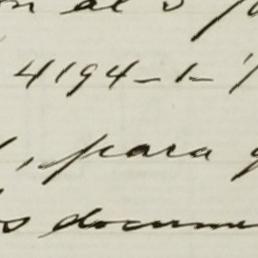 al 5
4194-1-
, para
docume